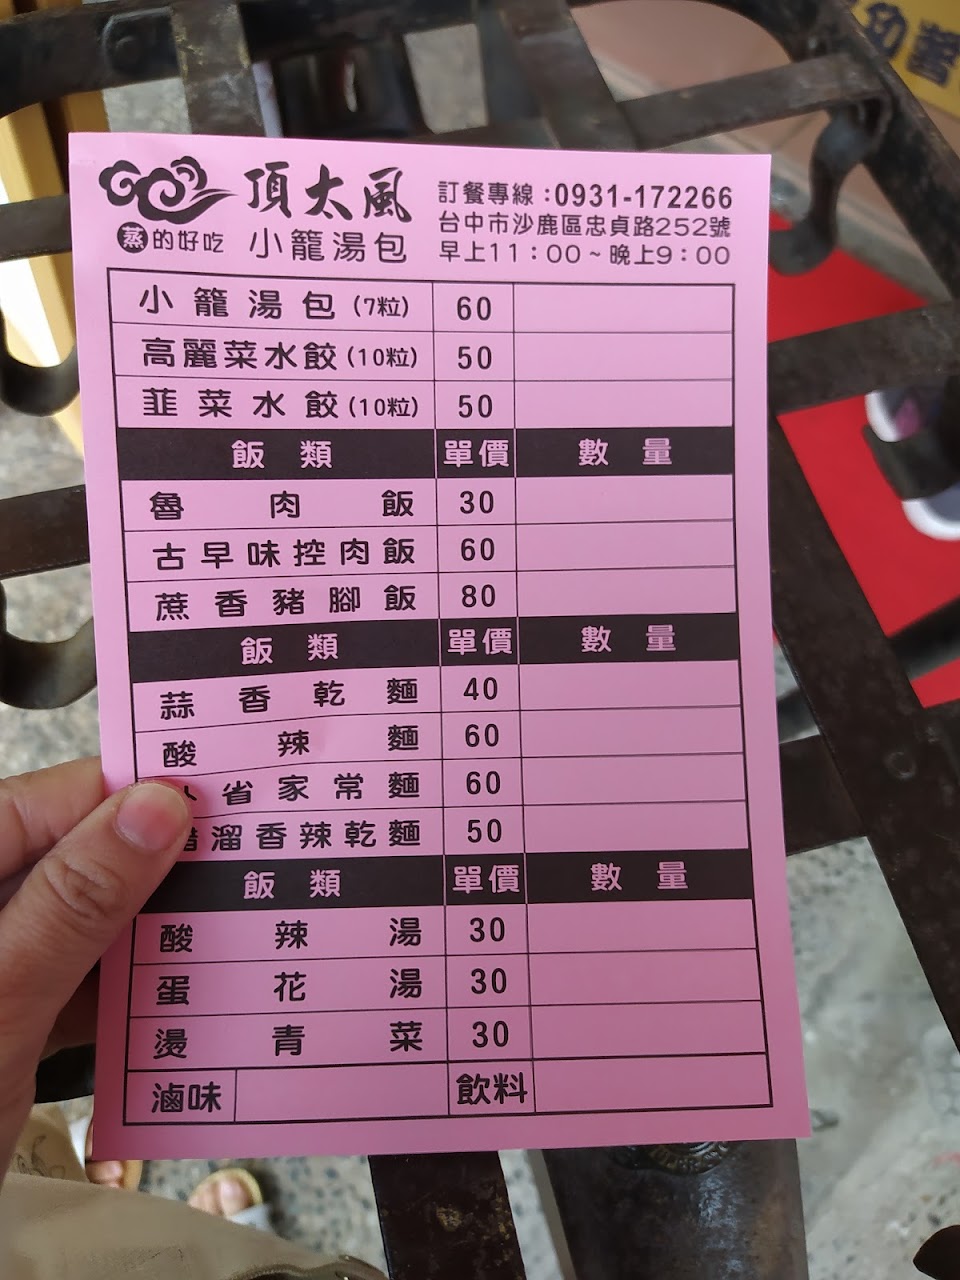 頂太風
蒸的好吃 小籠湯包
訂餐專線:0931-172266
台中市沙鹿區忠貞路252號
早上11:00~晚上9:00
小籠湯包(7粒) 60
高麗菜水餃(10粒) 50
韮菜水餃(10粒) 50
飯類 單價 數量
魯肉飯 30
古早味控肉飯 60
蔗香豬腳飯 80
飯類 單價 數量
蒜香乾麵 40
酸辣麵 60
省家常麵 60
溜香辣乾麵 50
飯類 單價 數量
酸辣湯 30
蛋花湯 30
燙青菜 30
滷味 飲料